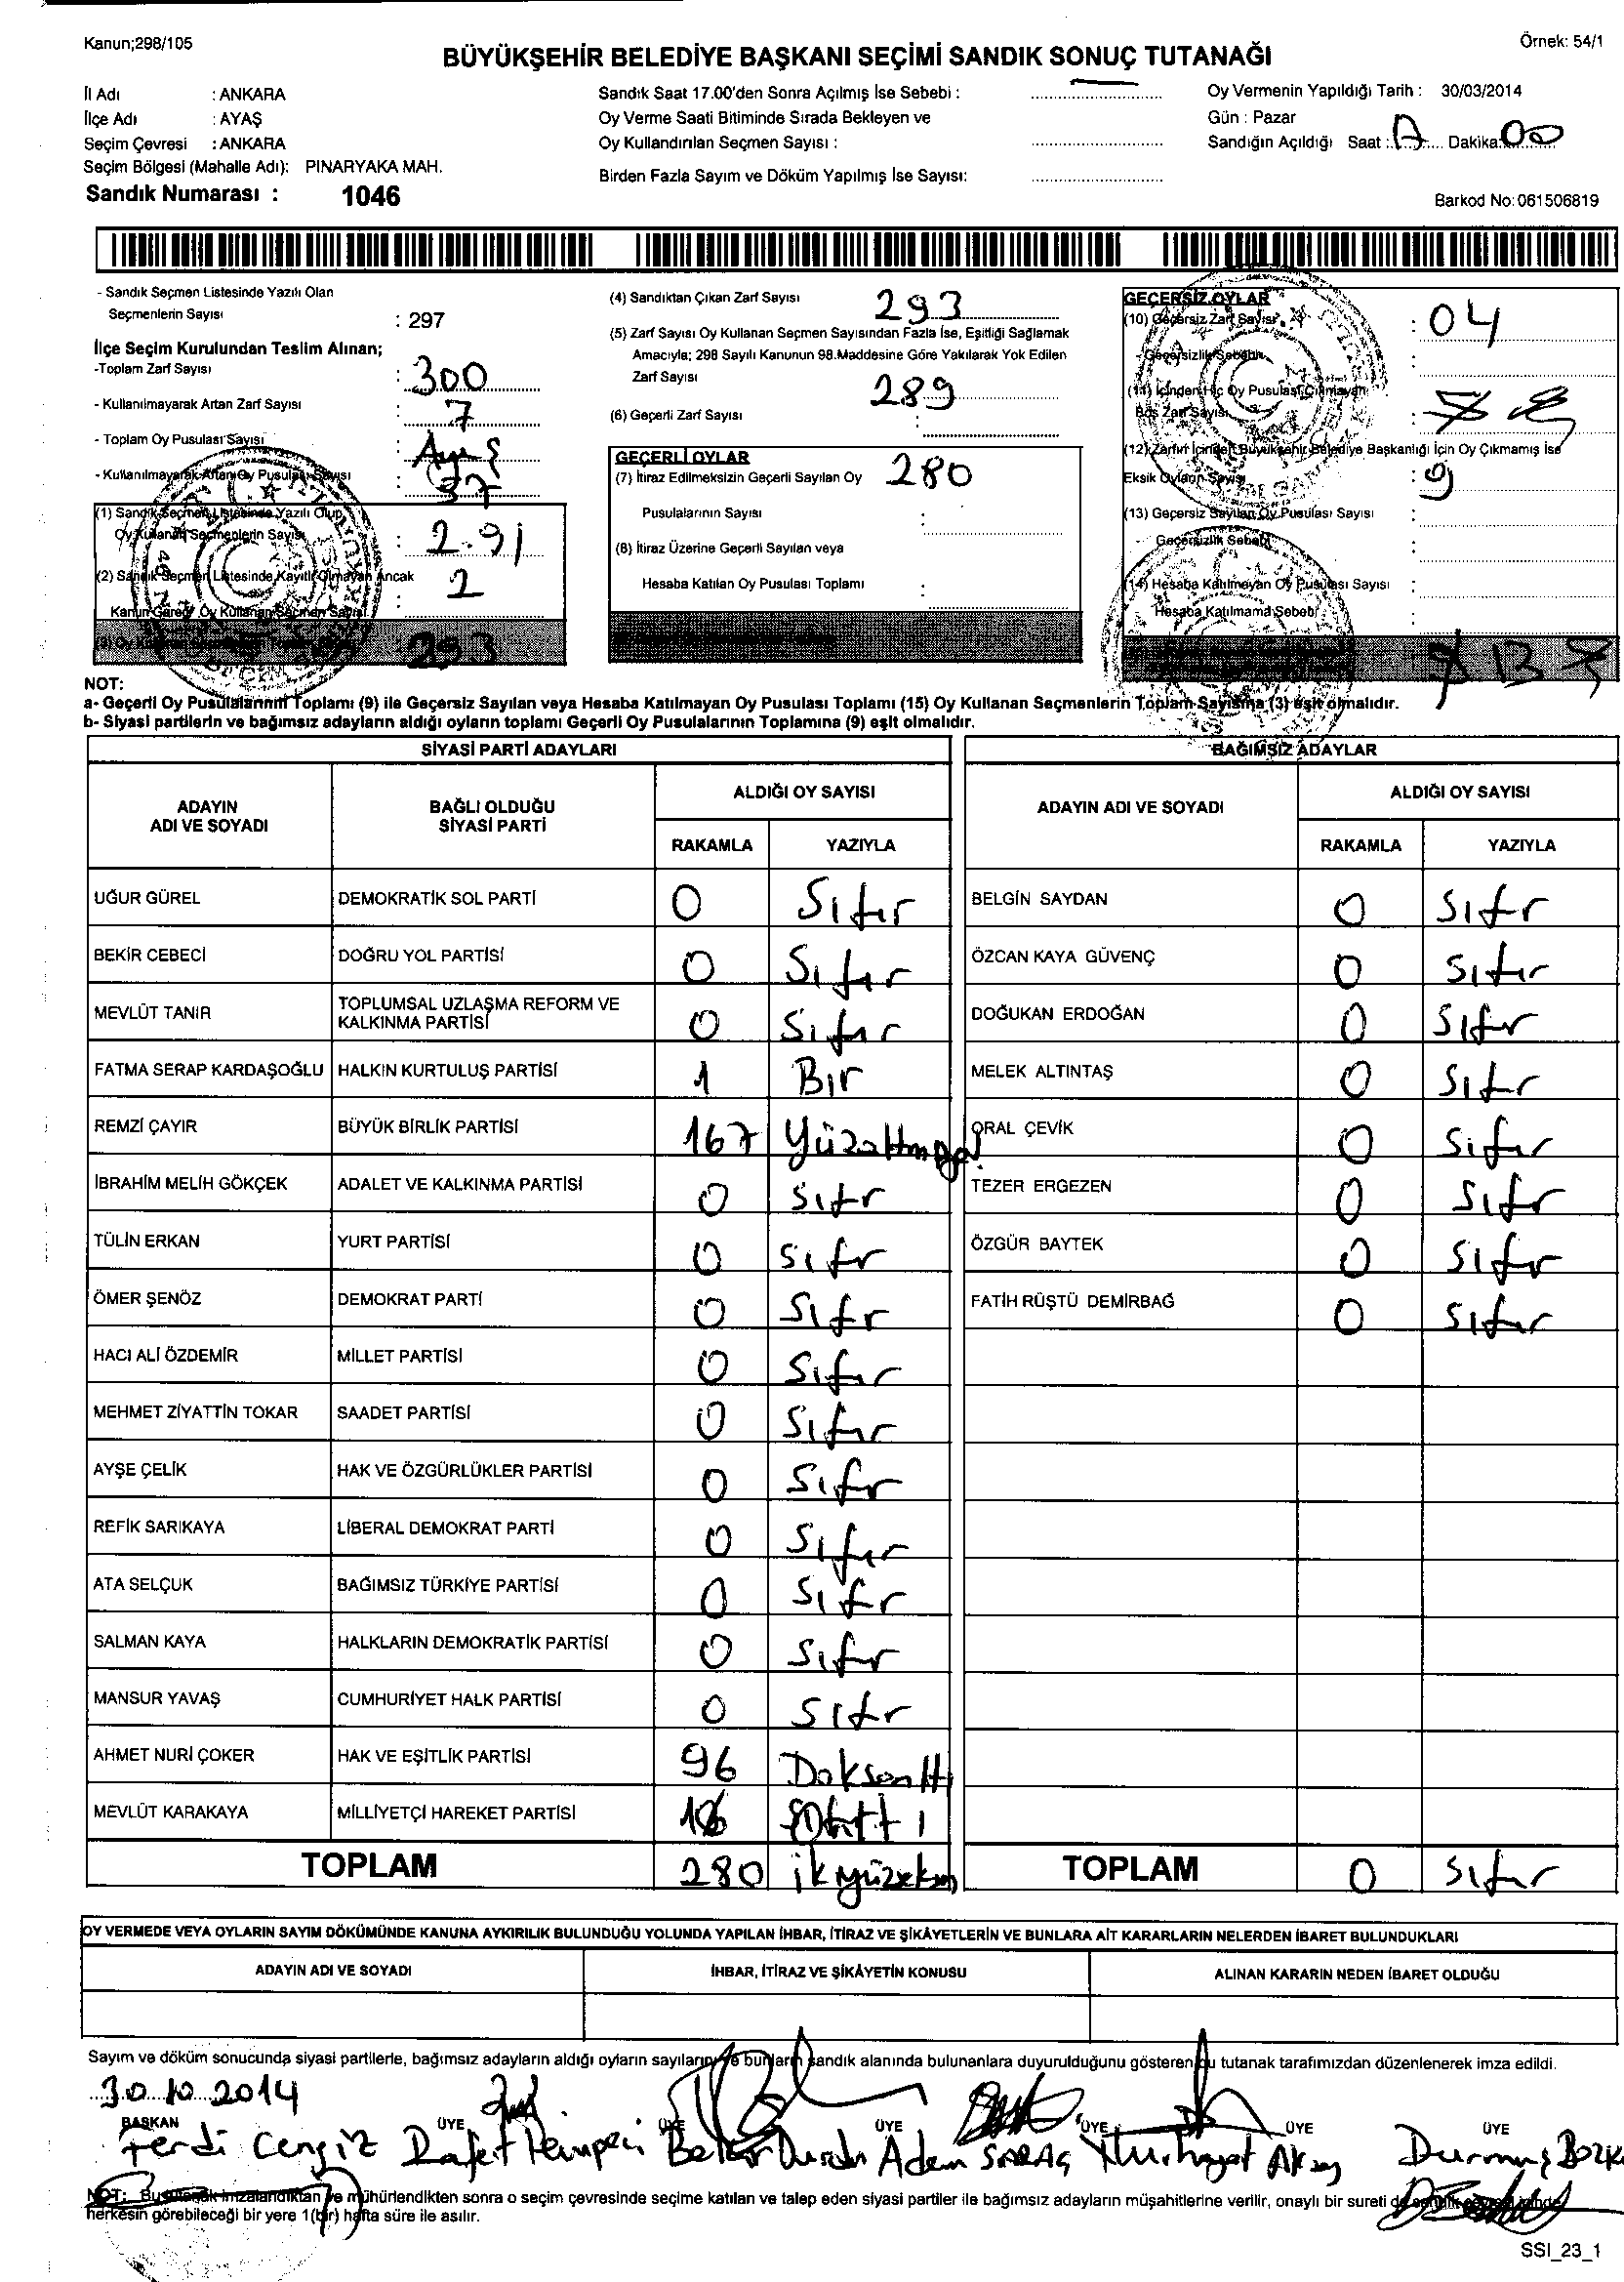 Kanun;298/105
Örnek: 54/1
BÜYÜKŞEHİR BELEDİYE BAŞKANI SEÇİMİ SANDIK SONUÇ TUTANAĞI
İl Adı : ANKARA
İlçe Adı : AYAŞ
Seçim Çevresi : ANKARA
Seçim Bölgesi (Mahalle Adı): PINARYAKA MAH.
Sandık Numarası : 1046
Sandık Saat 17.00'den Sonra Açılmış İse Sebebi :
Oy Verme Saati Bitiminde Sırada Bekleyen ve
Oy Kullandırılan Seçmen Sayısı :
Birden Fazla Sayım ve Döküm Yapılmış İse Sayısı:
Oy Vermenin Yapıldığı Tarih : 30/03/2014
Gün : Pazar
Sandığın Açıldığı Saat : Dakika: 00
Barkod No: 061506819
- Sandık Seçmen Listesinde Yazılı Olan
Seçmenlerin Sayısı : 297
İlçe Seçim Kurulundan Teslim Alınan;
-Toplam Zarf Sayısı : 300
- Kullanılmayarak Artan Zarf Sayısı : 7
- Toplam Oy Pusulası Sayısı :
- Kullanılmayarak Artan Oy Pusulası Sayısı : 37
(1) Sandık Seçmen Listesinde Yazılı Olup
Oy Kullanan Seçmenlerin Sayısı : 291
(2) Sandık Seçmen Listesinde Kayıtlı Olmayan Ancak
Kanun Gereği Oy Kullanan Seçmen Sayısı : 2
293
(4) Sandıktan Çıkan Zarf Sayısı 293
(5) Zarf Sayısı Oy Kullanan Seçmen Sayısından Fazla İse, Eşitliği Sağlamak
Amacıyla; 298 Sayılı Kanunun 98.Maddesine Göre Yakılarak Yok Edilen
Zarf Sayısı 289
(6) Geçerli Zarf Sayısı :
GEÇERLİ OYLAR
(7) İtiraz Edilmeksizin Geçerli Sayılan Oy 280
Pusulalarının Sayısı :
(8) İtiraz Üzerine Geçerli Sayılan veya
Hesaba Katılan Oy Pusulası Toplamı :
GEÇERSİZ OYLAR
(10) Geçersiz Zarf Sayısı : 04
- Geçersizlik Sebebi :
(11) İçinden Hiç Oy Pusulası Çıkmayan
Boş Zarf Sayısı :
(12) Zarfın İçinden Büyükşehir Belediye Başkanlığı İçin Oy Çıkmamış İse
Eksik Oyların Sayısı : 9
(13) Geçersiz Sayılan Oy Pusulası Sayısı :
Geçersizlik Sebebi :
(14) Hesaba Katılmayan Oy Pusulası Sayısı :
Hesaba Katılmama Sebebi :
13
NOT:
a- Geçerli Oy Pusulalarının Toplamı (9) ile Geçersiz Sayılan veya Hesaba Katılmayan Oy Pusulası Toplamı (15) Oy Kullanan Seçmenlerin Toplam Sayısına (3) eşit olmalıdır.
b- Siyasi partilerin ve bağımsız adayların aldığı oyların toplamı Geçerli Oy Pusulalarının Toplamına (9) eşit olmalıdır.
SİYASİ PARTİ ADAYLARI
ADAYIN ADI VE SOYADI
BAĞLI OLDUĞU SİYASİ PARTİ
ALDIĞI OY SAYISI
RAKAMLA YAZIYLA
UĞUR GÜREL DEMOKRATİK SOL PARTİ 0 Sıfır
BEKİR CEBECİ DOĞRU YOL PARTİSİ 0 Sıfır
MEVLÜT TANIR TOPLUMSAL UZLAŞMA REFORM VE KALKINMA PARTİSİ 0 Sıfır
FATMA SERAP KARDAŞOĞLU HALKIN KURTULUŞ PARTİSİ 1 Bir
REMZİ ÇAYIR BÜYÜK BİRLİK PARTİSİ 167
İBRAHİM MELİH GÖKÇEK ADALET VE KALKINMA PARTİSİ 0 Sıfır
TÜLİN ERKAN YURT PARTİSİ 0 Sıfır
ÖMER ŞENÖZ DEMOKRAT PARTİ 0 Sıfır
HACI ALİ ÖZDEMİR MİLLET PARTİSİ 0 Sıfır
MEHMET ZİYATTİN TOKAR SAADET PARTİSİ 0 Sıfır
AYŞE ÇELİK HAK VE ÖZGÜRLÜKLER PARTİSİ 0 Sıfır
REFİK SARIKAYA LİBERAL DEMOKRAT PARTİ 0 Sıfır
ATA SELÇUK BAĞIMSIZ TÜRKİYE PARTİSİ 0 Sıfır
SALMAN KAYA HALKLARIN DEMOKRATİK PARTİSİ 0 Sıfır
MANSUR YAVAŞ CUMHURİYET HALK PARTİSİ 0 Sıfır
AHMET NURİ ÇOKER HAK VE EŞİTLİK PARTİSİ 96 Doksanaltı
MEVLÜT KARAKAYA MİLLİYETÇİ HAREKET PARTİSİ 16
TOPLAM 280 ikiyüzseksen
BAĞIMSIZ ADAYLAR
ADAYIN ADI VE SOYADI
ALDIĞI OY SAYISI
RAKAMLA YAZIYLA
BELGİN SAYDAN 0 Sıfır
ÖZCAN KAYA GÜVENÇ 0 Sıfır
DOĞUKAN ERDOĞAN 0 Sıfır
MELEK ALTINTAŞ 0 Sıfır
ORAL ÇEVİK 0 Sıfır
TEZER ERGEZEN 0 Sıfır
ÖZGÜR BAYTEK 0 Sıfır
FATİH RÜŞTÜ DEMİRBAĞ 0 Sıfır
TOPLAM 0 Sıfır
OY VERMEDE VEYA OYLARIN SAYIM DÖKÜMÜNDE KANUNA AYKIRILIK BULUNDUĞU YOLUNDA YAPILAN İHBAR, İTİRAZ VE ŞİKÂYETLERİN VE BUNLARA AİT KARARLARIN NELERDEN İBARET BULUNDUKLARI
ADAYIN ADI VE SOYADI
İHBAR, İTİRAZ VE ŞİKÂYETİN KONUSU
ALINAN KARARIN NEDEN İBARET OLDUĞU
Sayım ve döküm sonucunda siyasi partilerle, bağımsız adayların aldığı oyların sayılarını ve bunların sandık alanında bulunanlara duyurulduğunu gösteren bu tutanak tarafımızdan düzenlenerek imza edildi.
30.10.2014
BAŞKAN ÜYE ÜYE ÜYE ÜYE ÜYE ÜYE
Ferdi Cengiz Rafet Adem SARAÇ Durmuş
NOT: Bu tutanak imzalandıktan ve mühürlendikten sonra o seçim çevresinde seçime katılan ve talep eden siyasi partiler ile bağımsız adayların müşahitlerine verilir, onaylı bir sureti de sandık
herkesin görebileceği bir yere 1(bir) hafta süre ile asılır.
SSI_23_1